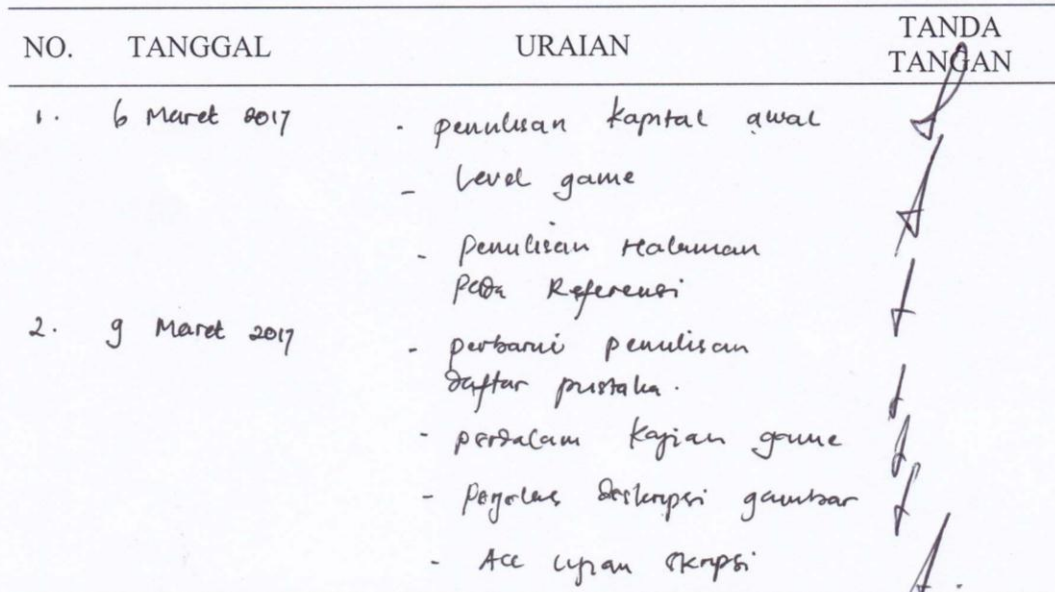 NO. TANGGAL URAIAN TANDA TANGAN
1. 6 Maret 2017 - penulisan kapital awal
- Level game
- penulisan Halaman
pada Referensi
2. 9 Maret 2017 - perbarui penulisan
daftar pustaka.
- perdalam kajian game
- perjelas deskripsi gambar
- Acc ujian skripsi